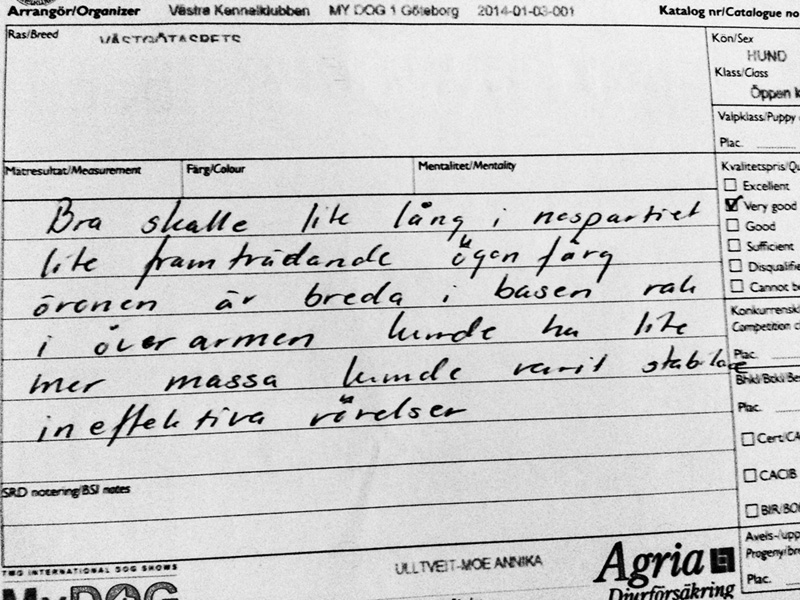 Arrangör/Organizer Västra Kennelklubben MY DOG 1 Göteborg 2014-01-03-001 Katalog nr/Catalogue no
Ras/Breed VÄSTGÖTASPETS
Kön/Sex
HUND
Klass/Class
Öppen k
Valpklass/Puppy
Plac.
Matresultat/Measurement Färg/Colour Mentalitet/Mentality
Kvalitetspris/Qu
Excellent
Very good
Good
Sufficient
Disqualifie
Cannot be
Bra skalle lite lång i nospartiet
lite framträdande ögon färg
öronen är breda i basen rak
i överarmen kunde ha lite
mer massa kunde varit stabilare
ineffektiva rörelser
Konkurrenskl
Competition c
Plac.
Bhkl/Btkl/Bes
Plac.
Cert/CA
CACIB
BIR/BO
SRD notering/BSI notes
Avels-/upp
Progeny/bre
Plac.
TWO INTERNATIONAL DOG SHOWS
MyDOG
ULLTVEIT-MOE ANNIKA
Agria
Djurförsäkring